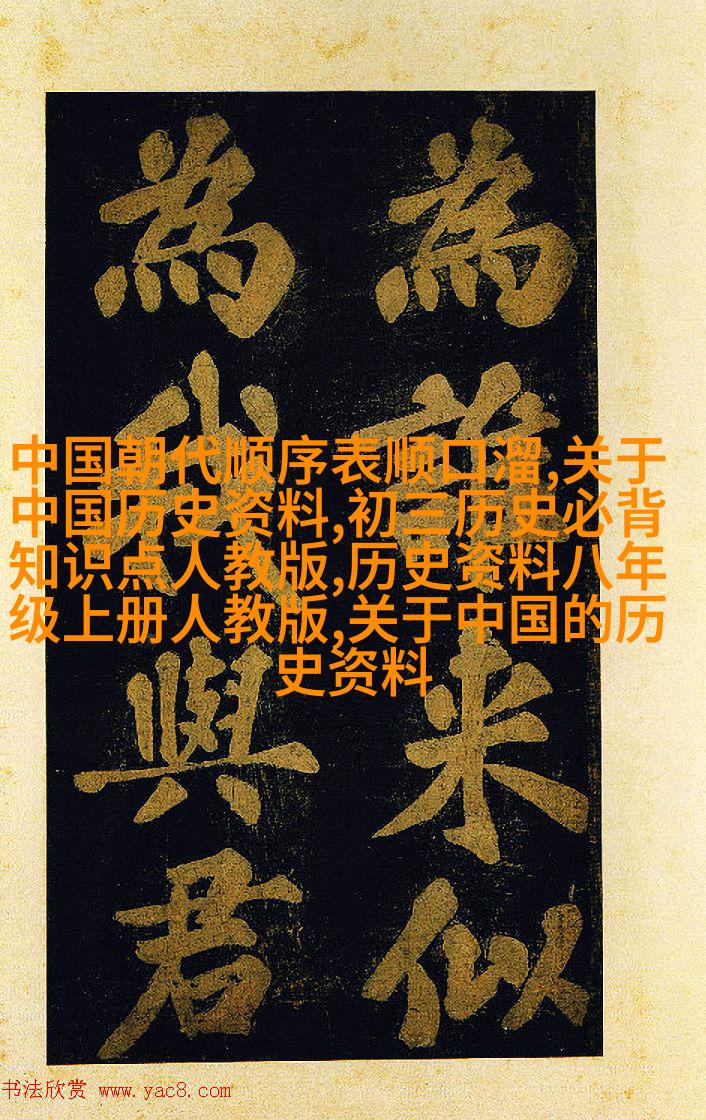 中国朝代顺序表顺口溜,关于
中国历史资料,初三历史必背
知识点人教版,历史资料八年
级上册人教版,关于中国的历
史资料
為誰米似
為我與君
书法欣赏 www.yac8.com